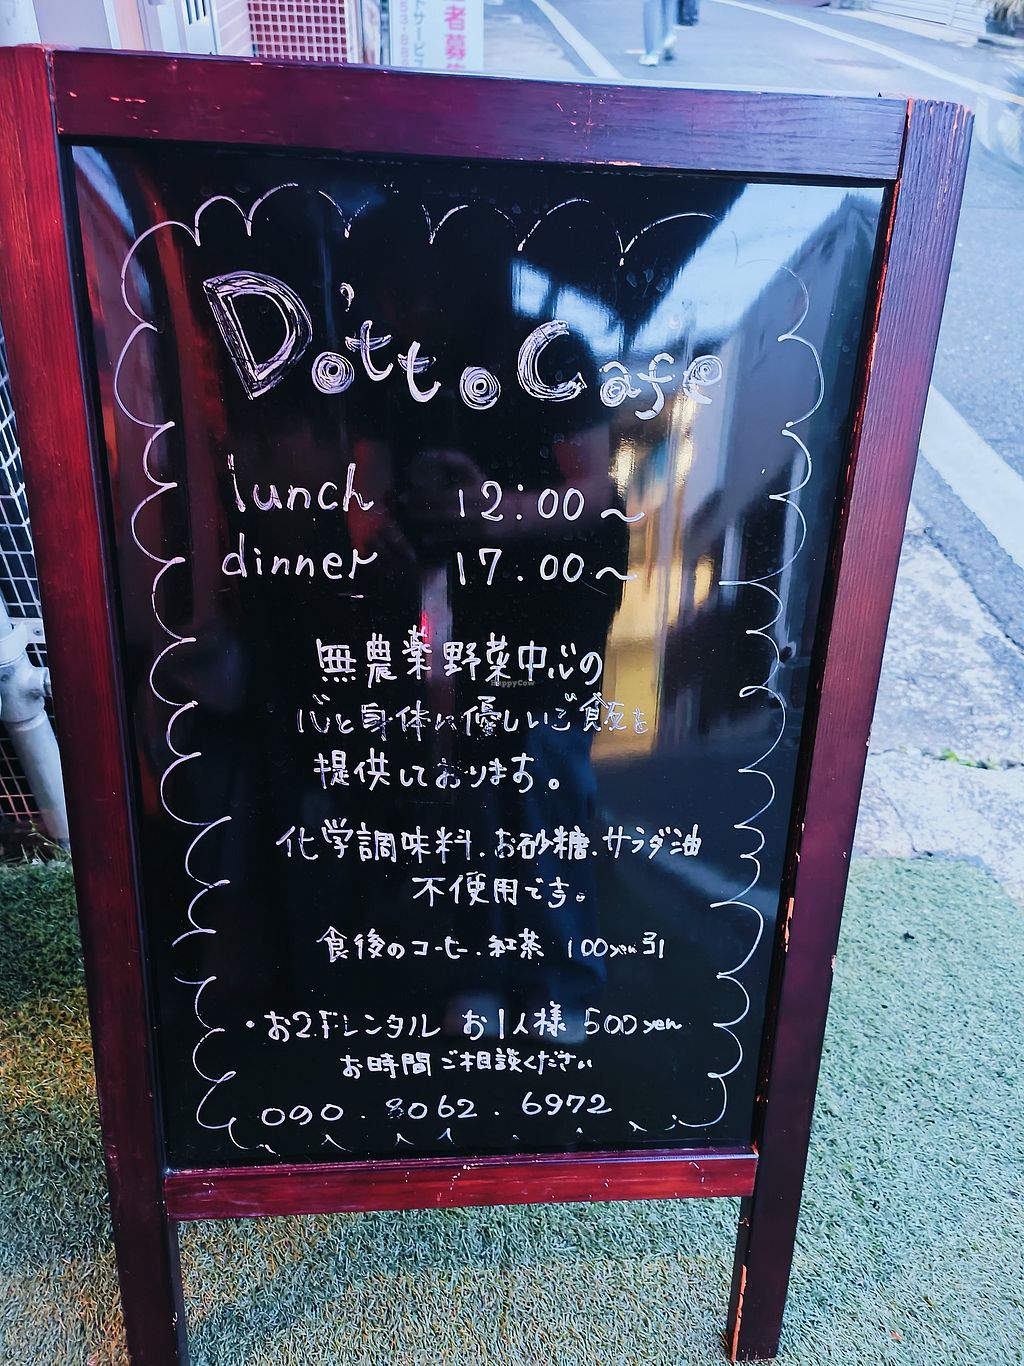 D'otto Cafe
lunch 12:00〜
dinner 17.00〜
無農薬野菜中心の
心と身体に優しいご飯を
提供しております。
化学調味料.お砂糖.サラダ油
不使用です。
食後のコーヒー.紅茶 100yen引
・お2Fレンタル お1人様 500yen
お時間ご相談ください
090.8062.6972
HappyCow